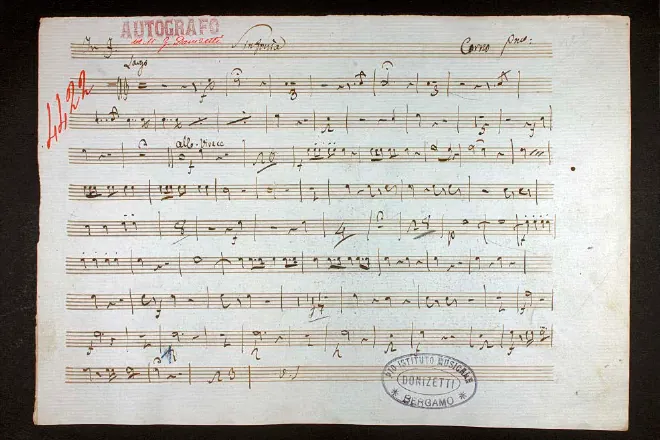 AUTOGRAFO
di G. Donizetti
In F. Sinfonia Corno Pmo:
Largo
4422
allo. vivace
PIO ISTITUTO MUSICALE
DONIZETTI
* BERGAMO *